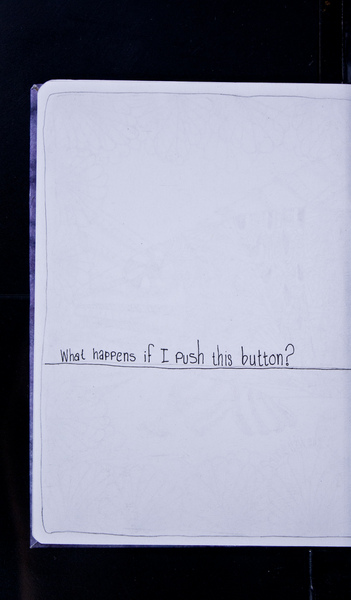 What happens if I push this button?